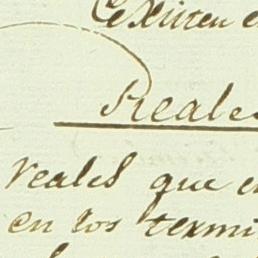 Existen e
Reales
reales que e
en los termi